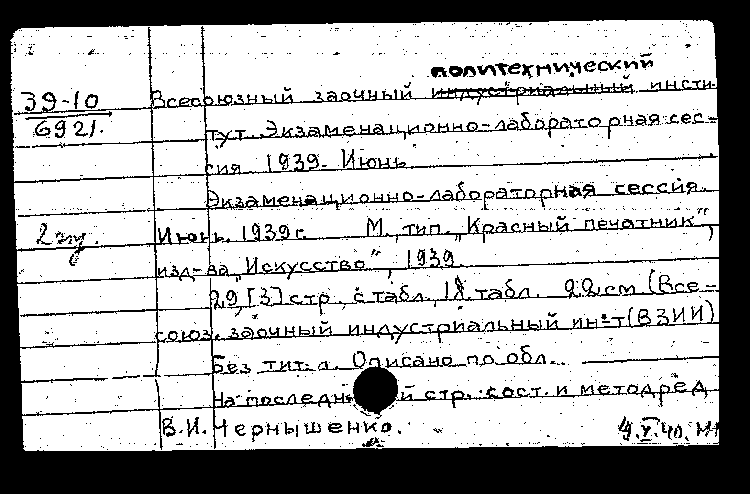 политехнический
39-10 Всесоюзный заочный индустриальный инсти-
6921. тут. Экзаменационно-лабораторная сес-
сия 1939. Июнь.
Экзаменационно-лабораторная сессия.
Июнь. 1939 г. М., тип. „Красный печатник",
изд-ва „Искусство", 1939.
29, [3] стр., с табл., 18 табл. 22 см (Все-
союз. заочный индустриальный ин-т (ВЗИИ)
Без тит. л. Описано по обл.
На последн й стр.: сост. и метод ред
В.И. Чернышенко.